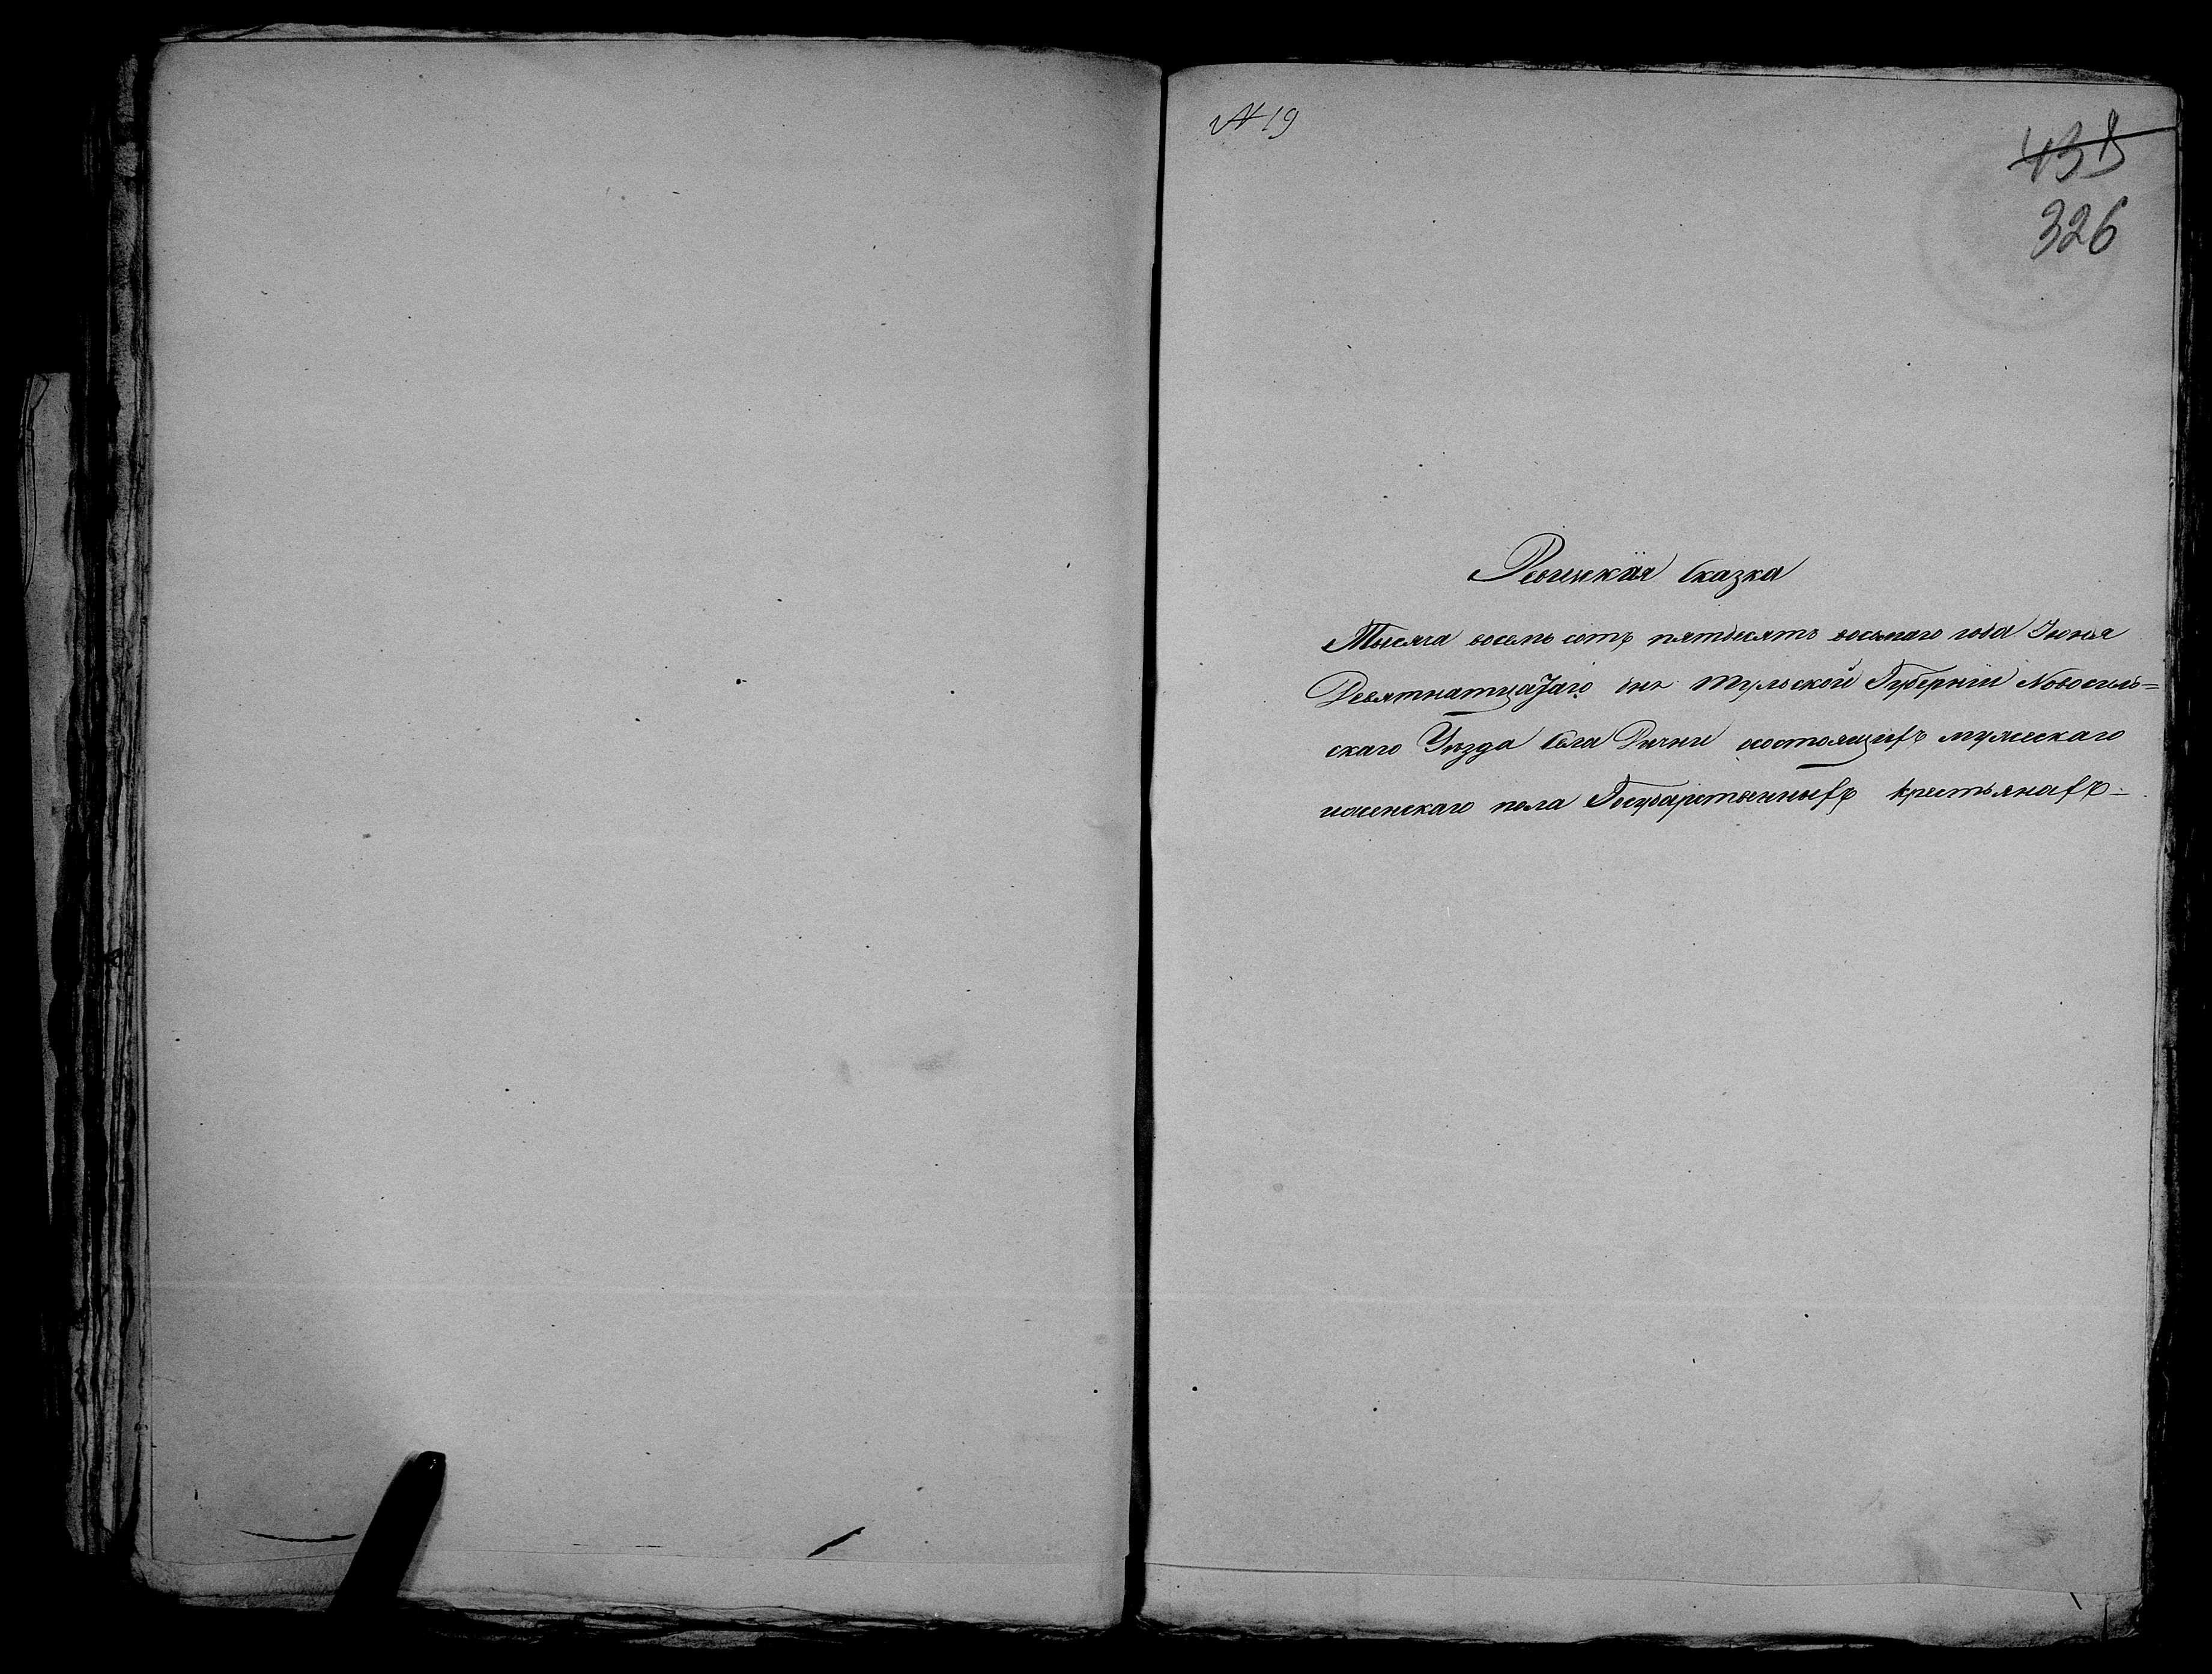 № 19
438
326
Ревизская Сказка
Тысяча восемь сотъ пятьдесятъ восьмаго года Июня
Девятнатцатаго дня Тульской Губернiи Новосиль=
скаго Уезда Села состоящихъ мужескаго
иженскаго пола Государственныхъ крестьянахъ